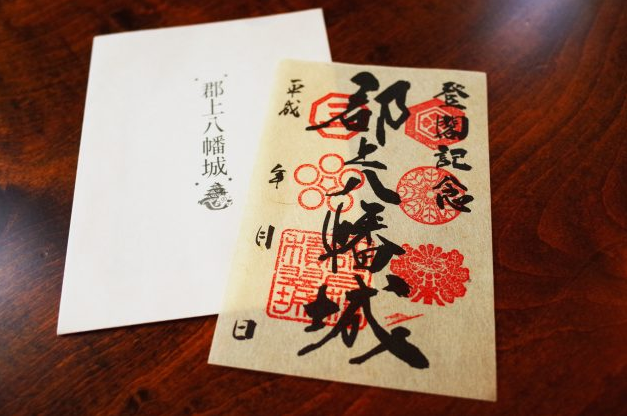 郡上八幡城
登閣記念
郡上八幡城
平成 年 月 日